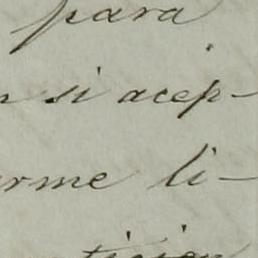 para
si acep-
rme li-